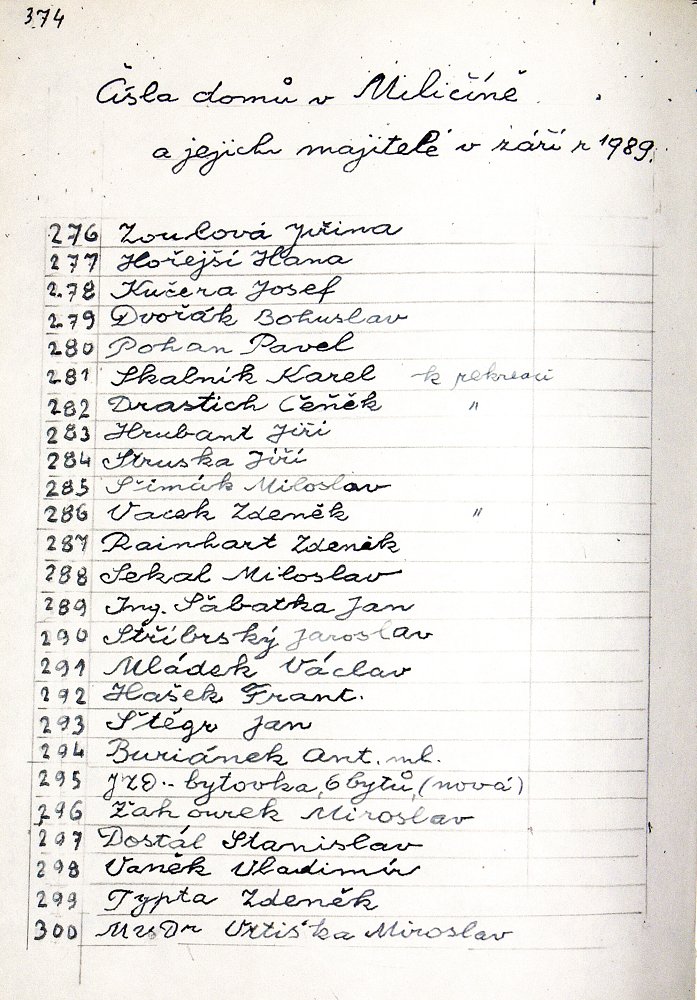 374
Čísla domů v Miličíně
a jejich majitelé v září r 1989.
276 Zoulová Jiřina
277 Hořejší Hana
278 Kučera Josef
279 Dvořák Bohuslav
280 Pohan Pavel
281 Skalník Karel - k rekreaci
282 Drastich Čeněk "
283 Hrubant Jiří
284 Struska Jiří
285 Šimák Miloslav
286 Vacek Zdeněk "
287 Rainhart Zdeněk
288 Sekal Miloslav
289 Ing. Sábatka Jan
290 Stříbrský Jaroslav
291 Mládek Václav
292 Hašek Frant.
293 Štěgr Jan
294 Buriánek Ant. ml.
295 JZD - bytovka, 6 bytů, (nová)
296 Zahourek Miroslav
297 Dostál Stanislav
298 Vaněk Vladimír
299 Typta Zdeněk
300 MUDr Vrtiška Miroslav